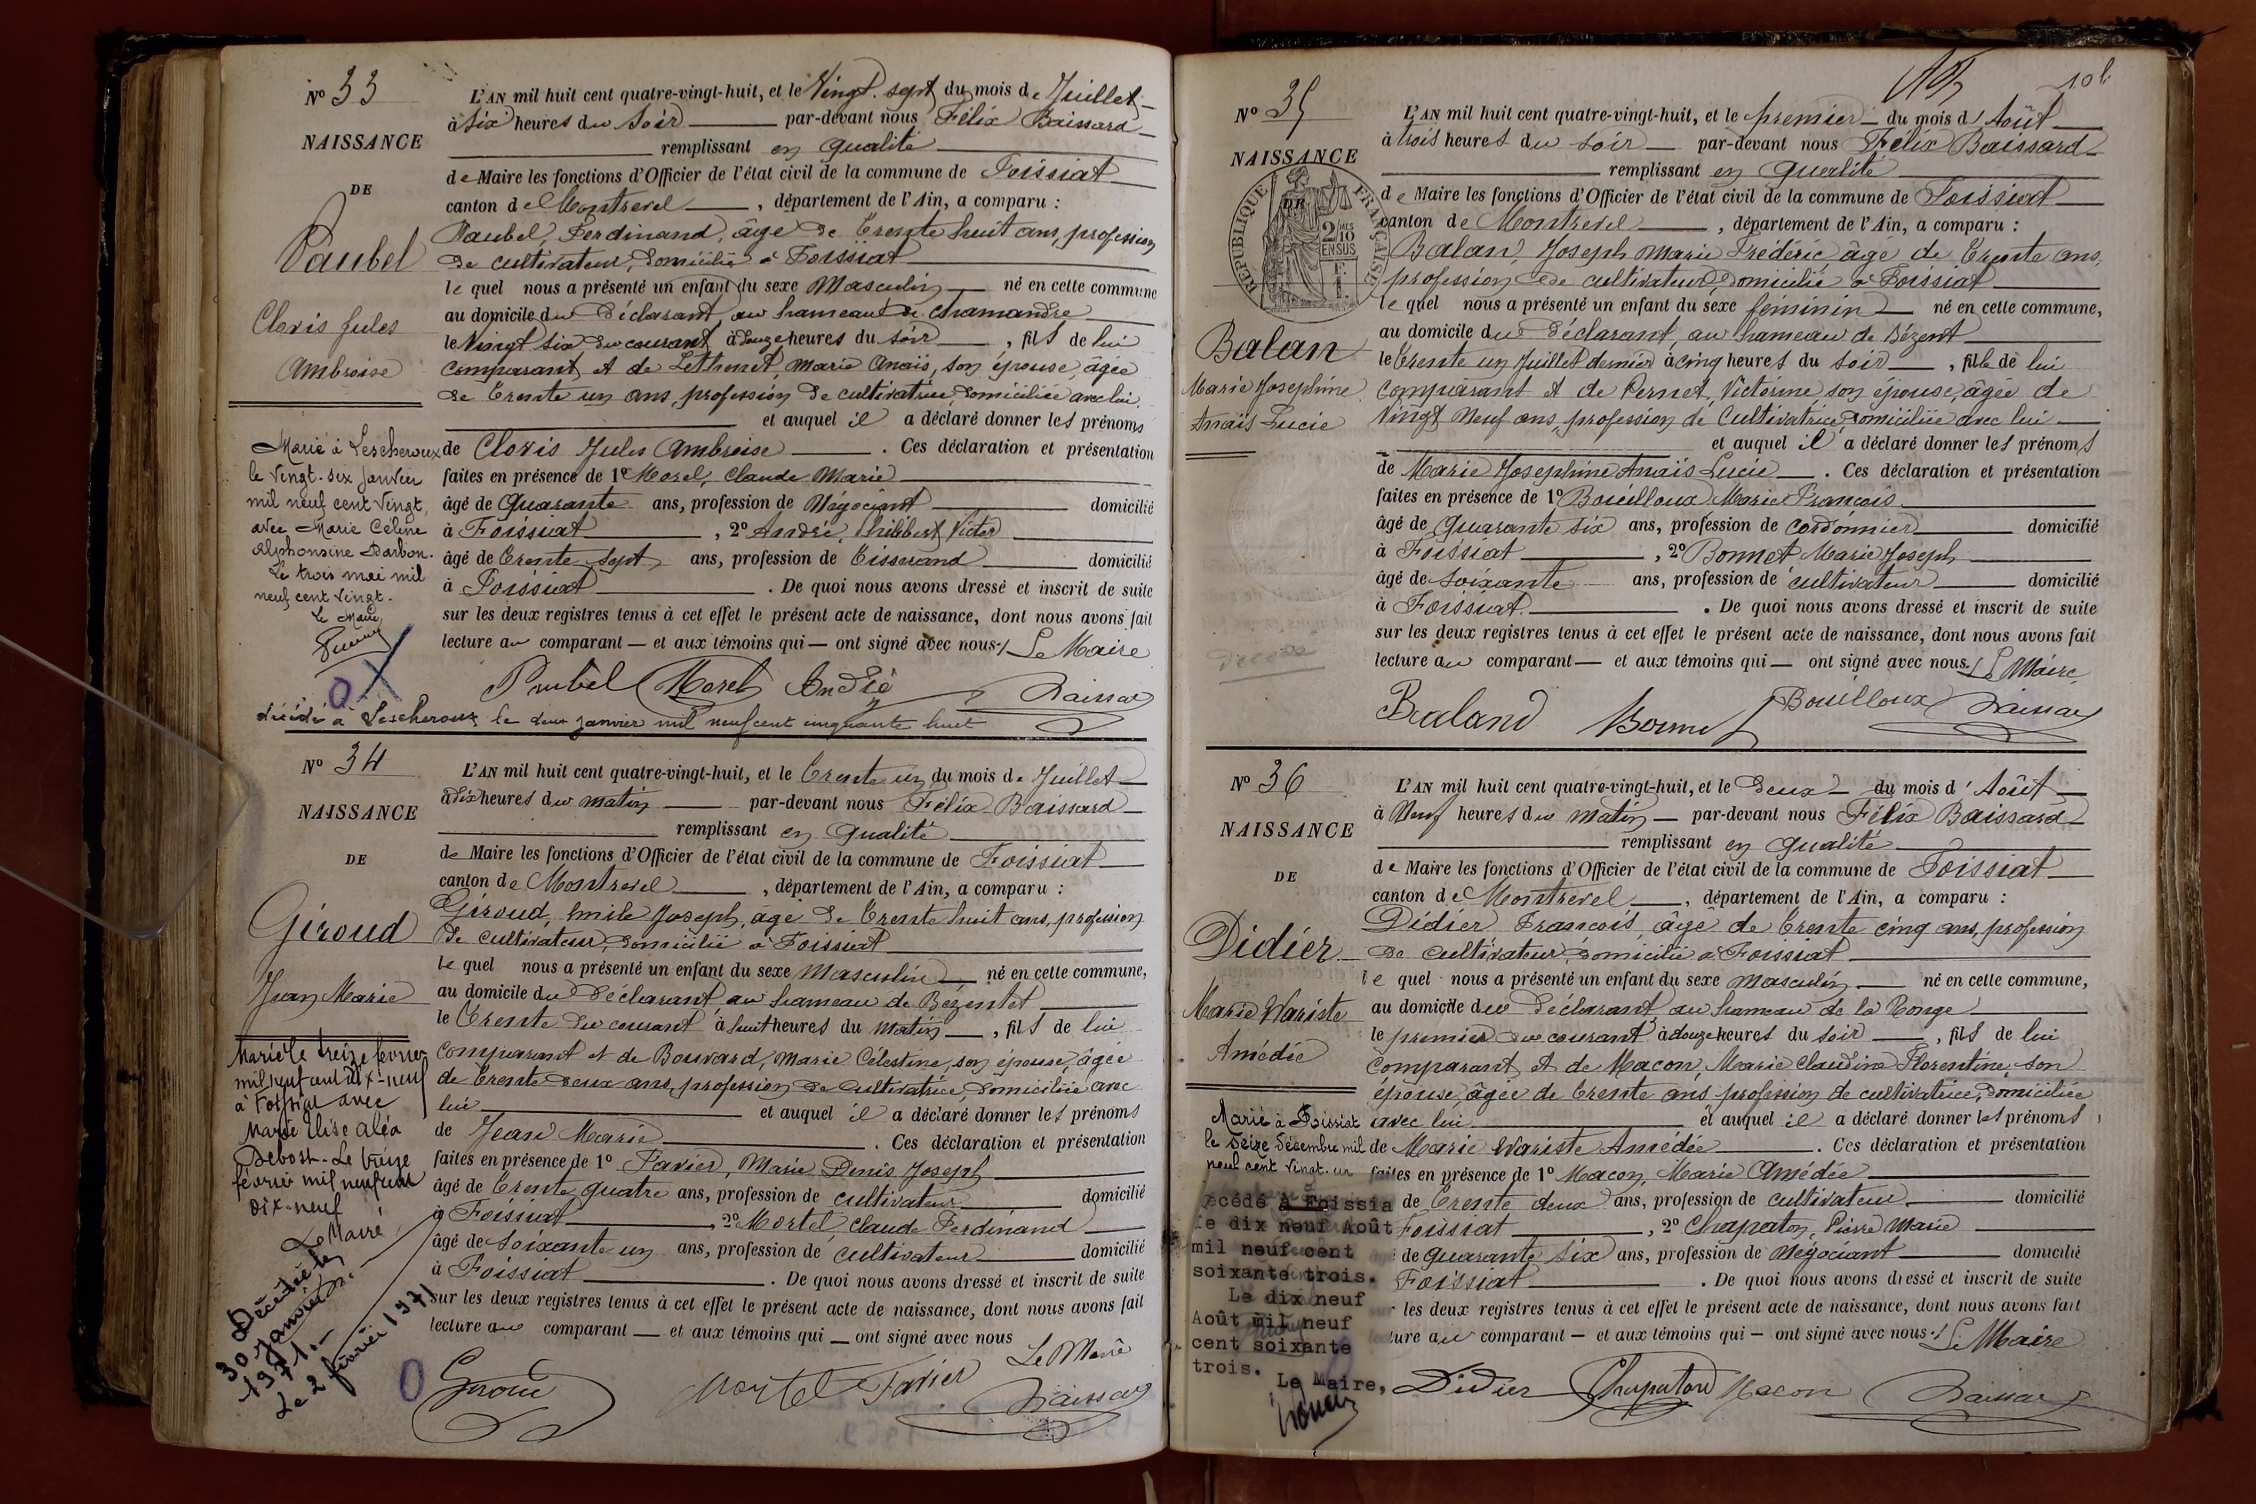 N° 33
NAISSANCE
DE
Paubel
Clovis Jules
Ambroise
L'AN mil huit cent quatre-vingt-huit, et le Vingt-sept du mois de Juillet
à six heures du soir par-devant nous Félix Baissard
remplissant en qualité
de Maire les fonctions d'Officier de l'état civil de la commune de Foissiat
canton de Montrevel, département de l'Ain, a comparu :
Paubel, Ferdinand, âgé de trente huit ans, profession
de cultivateur, domicilié à Foissiat
lequel nous a présenté un enfant du sexe Masculin né en cette commune
au domicile du déclarant, au hameau de Chamandre
le Vingt six du courant, à douze heures du soir, fils de lui
comparant et de Lethenet, Marie Anaïs, son épouse, âgée
de trente un ans, profession de cultivatrice, domiciliée avec lui
et auquel il a déclaré donner les prénoms
de Clovis Jules Ambroise. Ces déclaration et présentation
faites en présence de 1° Morel, Claude Marie
âgé de Quarante ans, profession de Négociant domicilié
à Foissiat, 2° André, Philibert, Victor
âgé de trente sept ans, profession de tisserand domicilié
à Foissiat. De quoi nous avons dressé et inscrit de suite
sur les deux registres tenus à cet effet le présent acte de naissance, dont nous avons fait
lecture au comparant — et aux témoins qui — ont signé avec nous./. Le Maire
Paubel Morel André Baissard
Marié à Lescheroux
le vingt-six Janvier
mil neuf cent vingt,
avec Marie Céline
Alphonsine Darbon.
Le trois mai mil
neuf cent vingt.
Le Maire
décédé à Lescheroux le deux janvier mil neuf cent cinquante huit
N° 34
NAISSANCE
DE
Giroud
Jean Marie
L'AN mil huit cent quatre-vingt-huit, et le trente un du mois de Juillet
à dix heures du matin par-devant nous Félix Baissard
remplissant en qualité
de Maire les fonctions d'Officier de l'état civil de la commune de Foissiat
canton de Montrevel, département de l'Ain, a comparu :
Giroud, Emile Joseph, âgé de trente huit ans, profession
de cultivateur, domicilié à Foissiat
lequel nous a présenté un enfant du sexe Masculin né en cette commune,
au domicile du déclarant, au hameau de Bézentet
le trente du courant, à huit heures du matin, fils de lui
comparant et de Bouvard, Marie Célestine, son épouse, âgée
de trente deux ans, profession de cultivatrice, domiciliée avec
lui et auquel il a déclaré donner les prénoms
de Jean Marie. Ces déclaration et présentation
faites en présence de 1° Favier, Marie Denis Joseph
âgé de trente quatre ans, profession de cultivateur domicilié
à Foissiat, 2° Mortel, Claude Ferdinand
âgé de soixante un ans, profession de cultivateur domicilié
à Foissiat. De quoi nous avons dressé et inscrit de suite
sur les deux registres tenus à cet effet le présent acte de naissance, dont nous avons fait
lecture au comparant — et aux témoins qui — ont signé avec nous
Le Maire
Giroud Mortel Favier Baissard
Marié le treize février
mil neuf cent dix-neuf
à Foissiat avec
Marie Elise Aléa
Debost. Le treize
février mil neuf cent
dix-neuf
Le Maire
Décédé le
30 janvier
1971.
Le 2 février 1971
106
N° 35
NAISSANCE
DE
RÉPUBLIQUE FRANÇAISE
2/10 EN SUS
Balan
Marie Josephine
Anaïs Lucie
L'AN mil huit cent quatre-vingt-huit, et le premier du mois d'Août
à trois heures du soir par-devant nous Félix Baissard
remplissant en qualité
de Maire les fonctions d'Officier de l'état civil de la commune de Foissiat
canton de Montrevel, département de l'Ain, a comparu :
Balan, Joseph Marie Frédéric âgé de trente ans,
profession de cultivateur, domicilié à Foissiat
lequel nous a présenté un enfant du sexe féminin né en cette commune,
au domicile du déclarant, au hameau de Bézent
le trente un Juillet dernier à cinq heures du soir, fille de lui
comparant et de Pernet, Victorine son épouse, âgée de
Vingt Neuf ans, profession de Cultivatrice, domiciliée avec lui
et auquel il a déclaré donner les prénoms
de Marie Josephine Anaïs Lucie. Ces déclaration et présentation
faites en présence de 1° Bouilloux Marie François
âgé de quarante six ans, profession de cordonnier domicilié
à Foissiat, 2° Bonnet Marie Joseph
âgé de soixante ans, profession de cultivateur domicilié
à Foissiat. De quoi nous avons dressé et inscrit de suite
sur les deux registres tenus à cet effet le présent acte de naissance, dont nous avons fait
lecture au comparant — et aux témoins qui — ont signé avec nous./. Le Maire
Baland Bonnet Bouilloux Baissard
N° 36
NAISSANCE
DE
Didier
Marie Wariste
Amédée
L'AN mil huit cent quatre-vingt-huit, et le deux du mois d'Août
à Neuf heures du matin par-devant nous Félix Baissard
remplissant en qualité
de Maire les fonctions d'Officier de l'état civil de la commune de Foissiat
canton de Montrevel, département de l'Ain, a comparu :
Didier François, âgé de trente cinq ans, profession
de cultivateur, domicilié à Foissiat
lequel nous a présenté un enfant du sexe masculin né en cette commune,
au domicile du déclarant, au hameau de la Ronge
le premier du courant à douze heures du soir, fils de lui
comparant et de Macon, Marie Claudine Florentine, son
épouse, âgée de trente ans profession de cultivatrice, domiciliée
avec lui et auquel il a déclaré donner les prénoms
de Marie Wariste Amédée. Ces déclaration et présentation
faites en présence de 1° Macon, Marie Amédée
de trente deux ans, profession de cultivateur domicilié
Foissiat, 2° Chapaton, Pierre Marie
de quarante six ans, profession de Négociant domicilié
Foissiat. De quoi nous avons dressé et inscrit de suite
les deux registres tenus à cet effet le présent acte de naissance, dont nous avons fait
lecture au comparant — et aux témoins qui — ont signé avec nous./. Le Maire
Didier Chapaton Macon Baissard
Marié à Foissiat
le seize Décembre mil
neuf cent vingt-un
écédé à Foissia
le dix neuf Août
mil neuf cent
soixante trois.
Le dix neuf
Août mil neuf
cent soixante
trois.
Le Maire,